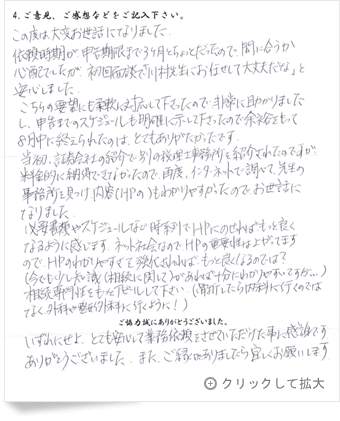 4.ご意見、ご感想などをご記入下さい。
この度は大変お世話になりました。
依頼時期が申告期限まで3ヶ月とちょっとだったので、間に合うか
心配でしたが、初回面談で川村先生に「お任せして大丈夫だな」と
安心しました。
こちらの要望にも柔軟に対応して下さったので非常に助かりました
し、申告までのスケジュールも明確に示して下さったので余裕をもって
8月中に終えられたのは、とてもありがたかったです。
当初、証券会社の紹介で別の税理士事務所を紹介されたのですが
料金的に納得できなかったので、再度、インターネットで調べて、先生の
事務所を見つけ、内容(HPの)もわかりやすかったので、お世話に
なりました。
必要書類やスケジュールなど時系列でHPにのせればもっと良く
なるように感じます。ネット社会なのでHPの重要性は上がってます
ので、HPのわかりやすさを強化されれば、もっと良くなるのでは?
(今でも少し知識(相続に関して)があれば十分にわかりやすいですが…)
相続専門性をもっとアピールして下さい。(骨折したら内科に行くのでは
なく、外科や整形外科に行くように!)
ご協力誠にありがとうございました。
いずれにせよ、とても安心して業務依頼をさせていただけた事に感謝です
ありがとうございました。また、ご縁がありましたら宜しくお願いします
クリックして拡大